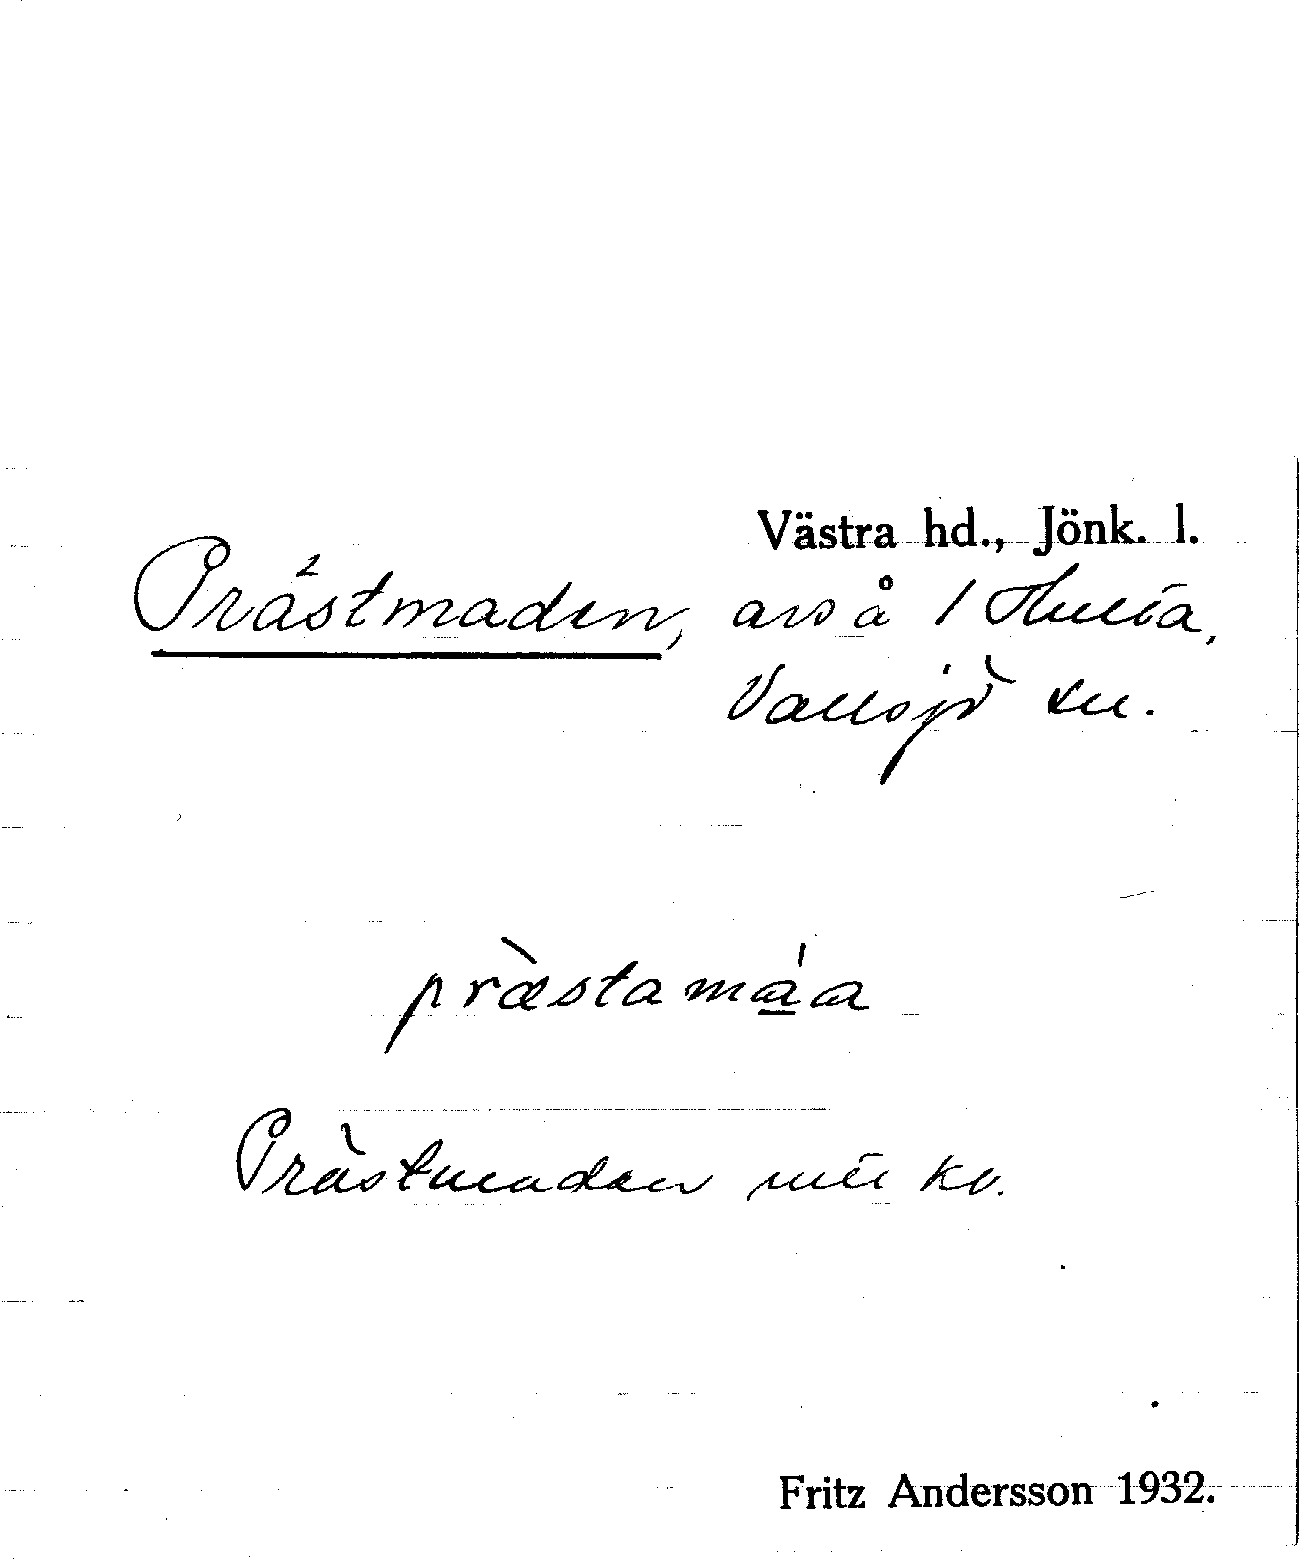 Västra hd., Jönk. l.
Prästmaden, avs å 1 Hulta,
Vallsjö sn.
præ̀stamáa
Prästmaden utr kv.
Fritz Andersson 1932.